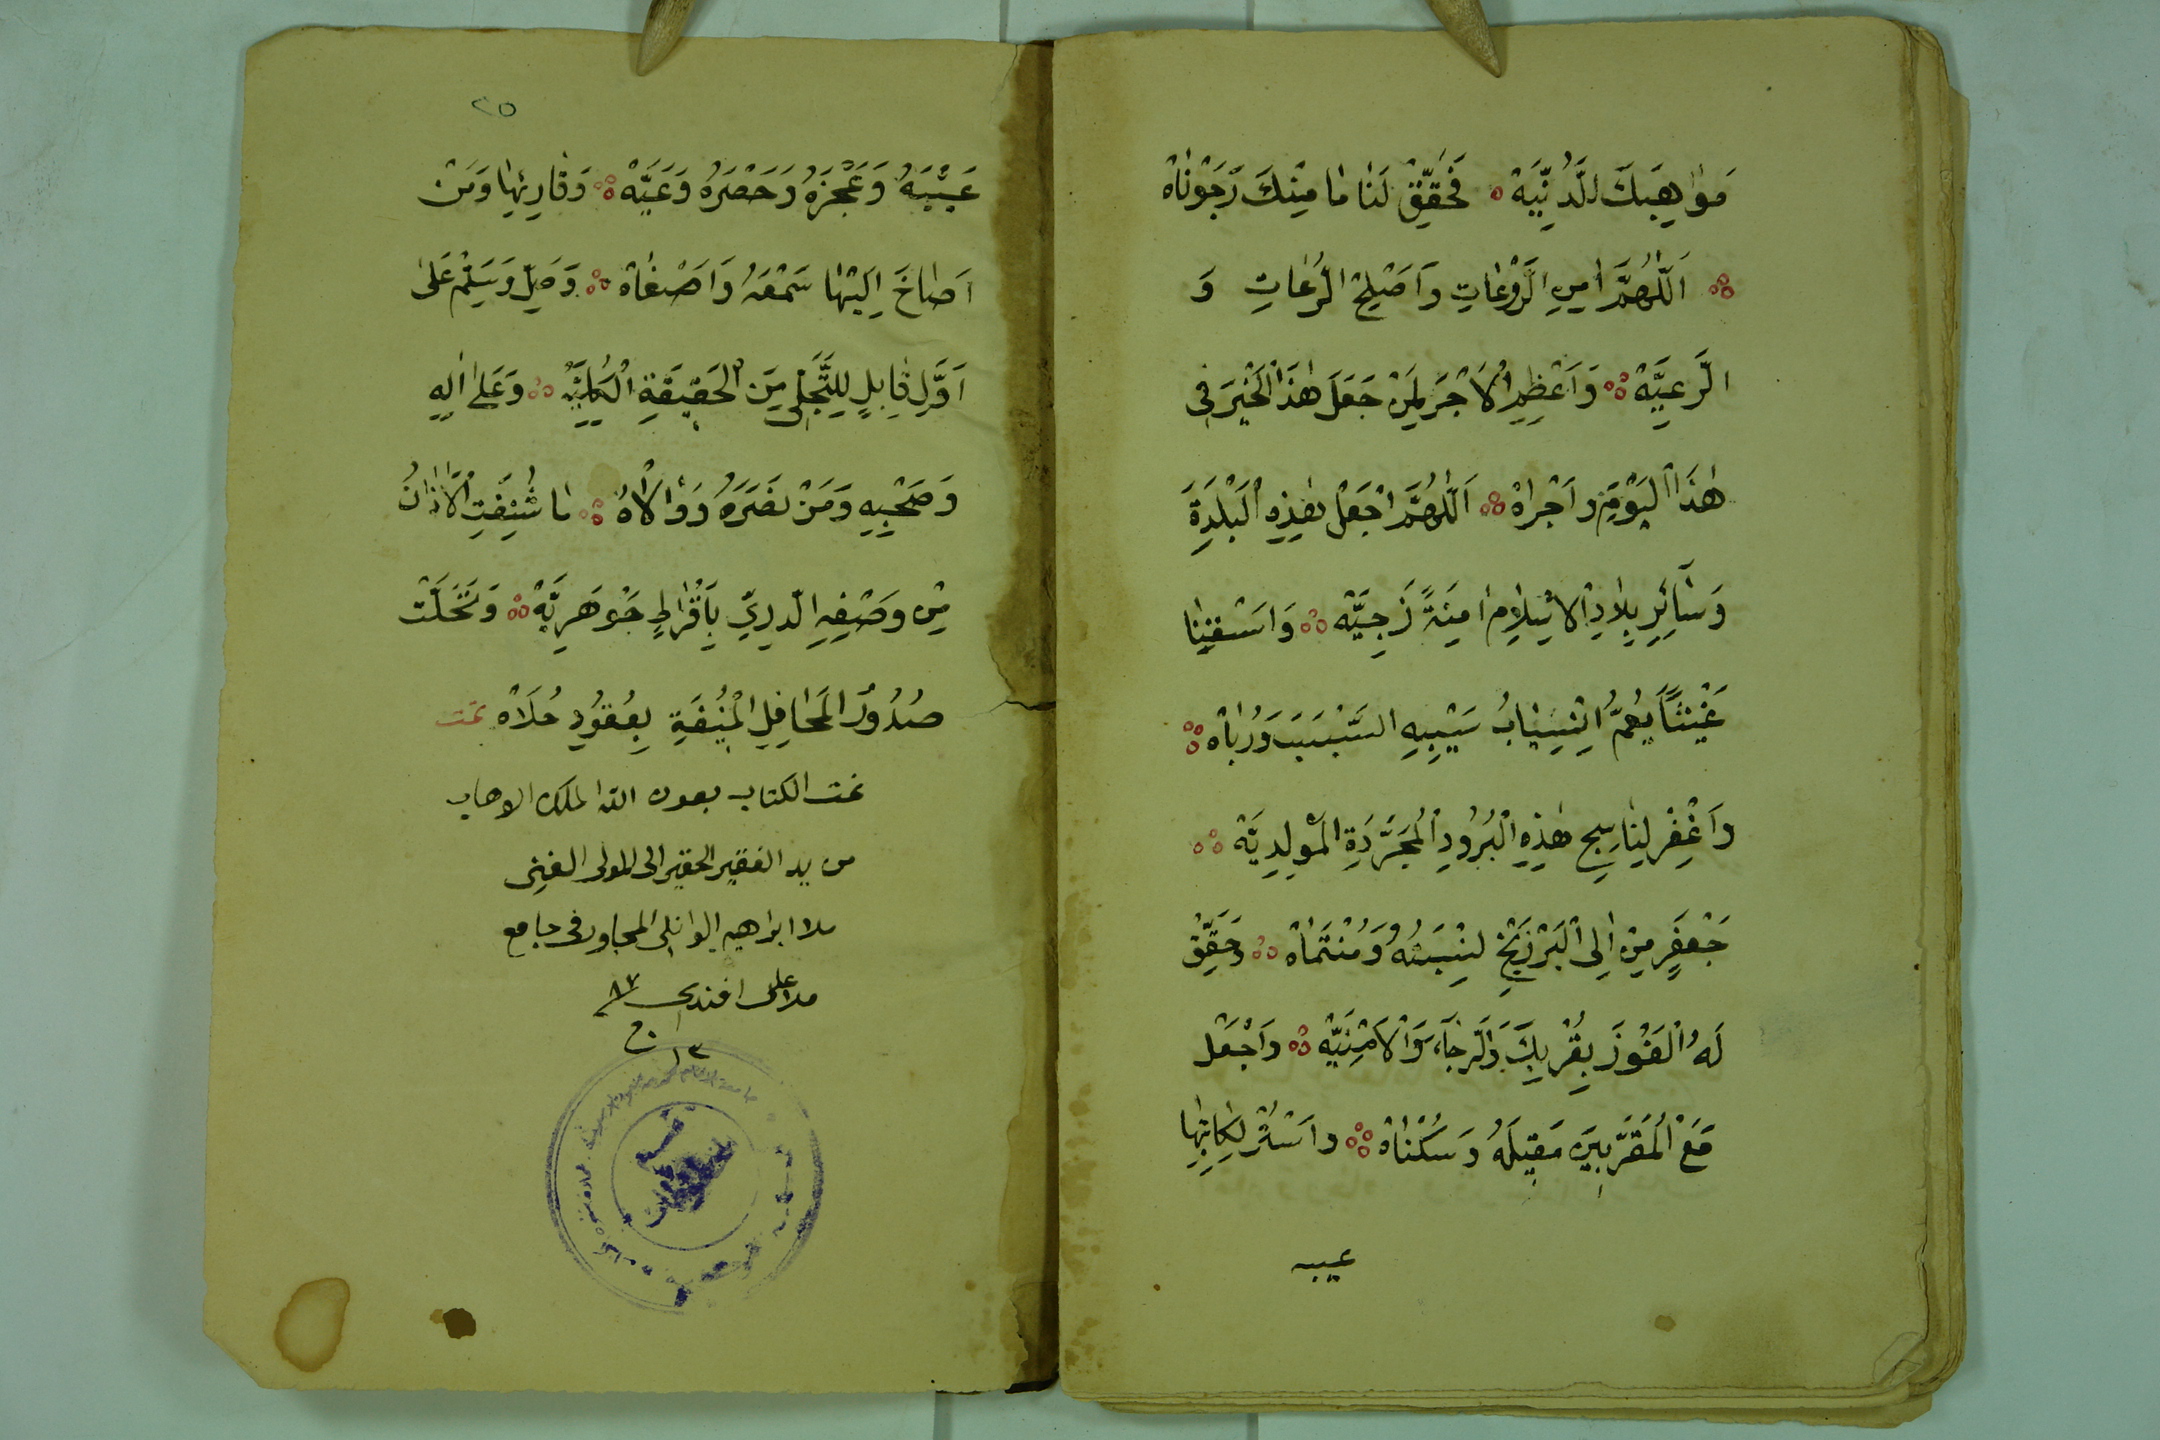 مَوَاهِبَكَ للَّدُنِّيَةْ فَحَقِّقْ لَنَا مَا مِنْكَ رَجَوْنَاهْ
اَللّٰهُمَّ اٰمِنِ الرَّوْعَاتِ وَاَصْلِحْ الرُّعَاتِ وَ
الرَّعِيَّةْ وَاَعْظِمِ الْاَجْرَ لِمَنْ جَعَلَ هٰذَا الْخَيْرَ فِى
هٰذَا الْيَوْمِ وَاَجْرَاهْ اَللّٰهُمَّ اجْعَلْ هٰذِهِ الْبَلْدَةَ
وَسَآئِرَ بِلَادِ الْاِسْلَامِ اٰمِنَةً رَخِيَّةْ وَاسْقِنَا
غَيْثًا يَعُمُّ انْسِيَابُ سَيْبِهِ السَّبْسَبَ وَرُبَاهْ
وَاغْفِرْ لِنَاسِجِ هٰذِهِ الْبُرُودِ الْمُحَرَّدَةِ الْمَوْلِدِيَّةْ
جَعْفَرٍ مَنْ اِلَى الْبَرْزَنْجِ لنِسْبَتُهُ وَمُنْتَمَاهْ وَحَقِّقْ
لَهُ الْفَوْزَ بِقُرْبِكَ وَالرَّجَآءَ وَالْاُمْنِيَّةْ وَاجْعَلْ
مَعَ الْمُقَرَّبِينَ مَقِيلَهُ وَسُكْنَاهْ وَاسْتُرْ لِكَاتِبِهَا
عيبه
٢٥
عَيْبَهُ وَعَجْزَهُ وَحَصْرَهُ وَعَيَّهْ وَقَارِئِهَا وَمَنْ
اَصَاخَ اِلَيْهَا سَمْعَهُ وَاَصْغَاهْ وَصَلِّ وَسَلِّمْ عَلٰى
اَوَّلِ قَابِلٍ لِلتَّجَلِّى مِنَ الْحَقِيقَةِ الْكُلِّيَّةْ وَعَلٰى اٰلِهِ
وَصَحْبِهِ وَمَنْ نَصَرَهُ وَوَالَاهُ مَا شُنِّفَتِ الْاٰذَانُ
مِنْ وَصْفِهِ الدُّرِّىِّ بِاَقْرَاطٍ جَوْهَرِيَّةْ وَتَحَلَّتْ
صُدُورُ الْمَحَافِلِ الْمُنِيفَةِ بِعُقُودِ حُلَاهْ تمت
تمت الكتاب بعون الله الملك الوهاب
من يد الفقير الحقير الى المولى الغنى
ملا ابراهيم الوانلى المجاور فى جامع
ملا على افندى ٨٧